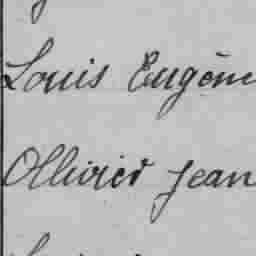 Louis Eugène
Ollivier Jean